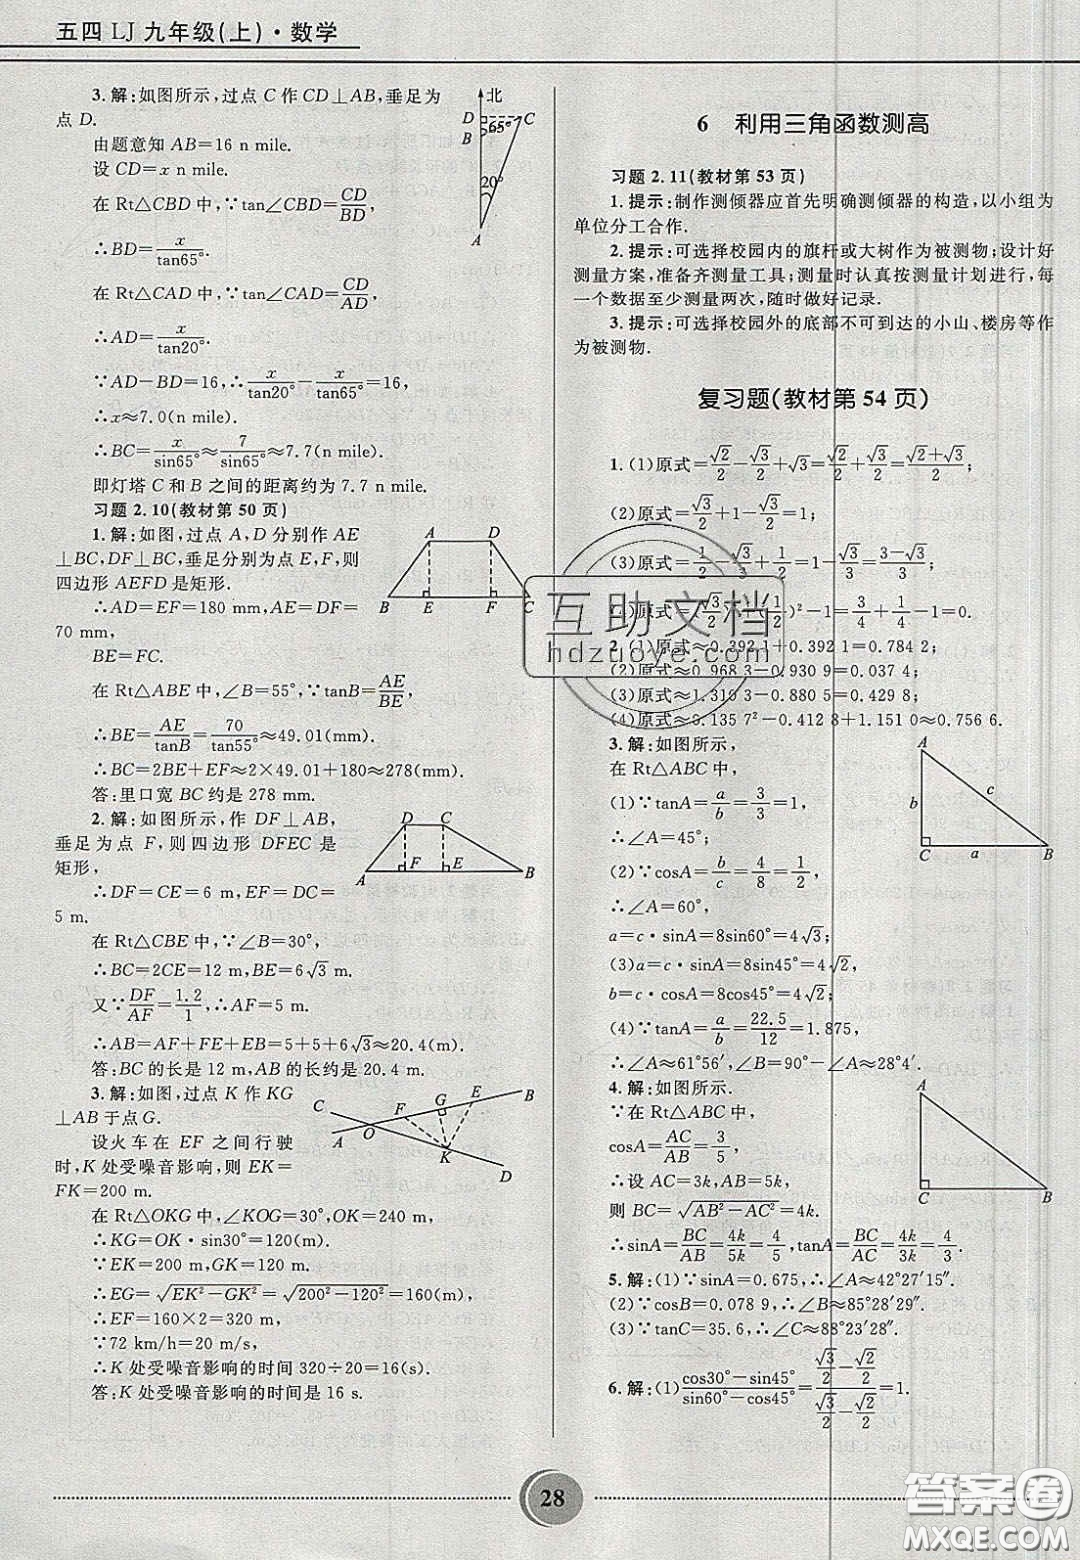 五四 LJ 九年级(上)·数学
3. 解:如图所示,过点 C 作 CD⊥AB,垂足为
点 D.
由题意知 AB=16 n mile.
设 CD=x n mile.
在 Rt△CBD 中,∵tan∠CBD=CD/BD,
∴BD=x/tan65°.
在 Rt△CAD 中,∵tan∠CAD=CD/AD,
∴AD=x/tan20°.
∵AD−BD=16,∴x/tan20°−x/tan65°=16,
∴x≈7.0(n mile).
∴BC=x/sin65°≈7/sin65°≈7.7(n mile).
即灯塔 C 和 B 之间的距离约为 7.7 n mile.
北
D
C
B
65°
20°
A
习题 2.10(教材第 50 页)
1. 解:如图,过点 A,D 分别作 AE
⊥BC,DF⊥BC,垂足分别为点 E,F,则
四边形 AEFD 是矩形.
∴AD=EF=180 mm,AE=DF=
70 mm,
BE=FC.
在 Rt△ABE 中,∠B=55°,∵tanB=AE/BE,
∴BE=AE/tanB=70/tan55°≈49.01(mm).
∴BC=2BE+EF≈2×49.01+180≈278(mm).
答:里口宽 BC 约是 278 mm.
A D
B E F C
2. 解:如图所示,作 DF⊥AB,
垂足为点 F,则四边形 DFEC 是
矩形,
∴DF=CE=6 m,EF=DC=
5 m.
在 Rt△CBE 中,∵∠B=30°,
∴BC=2CE=12 m,BE=6√3 m.
又∵DF/AF=1.2/1,∴AF=5 m.
∴AB=AF+FE+BE=5+5+6√3≈20.4(m).
答:BC 的长是 12 m,AB 的长约是 20.4 m.
D C
A F E B
3. 解:如图,过点 K 作 KG
⊥AB 于点 G.
设火车在 EF 之间行驶
时,K 处受噪音影响,则 EK=
FK=200 m.
在 Rt△OKG 中,∠KOG=30°,OK=240 m,
∴KG=OK·sin30°=120(m).
∵EK=200 m,GK=120 m,
∴EG=√(EK²−GK²)=√(200²−120²)=160(m).
∴EF=160×2=320 m,
∵72 km/h=20 m/s,
∴K 处受噪音影响的时间 320÷20=16(s).
答:K 处受噪音影响的时间是 16 s.
C F G E B
A O K D
6 利用三角函数测高
习题 2.11(教材第 53 页)
1. 提示:制作测倾器应首先明确测倾器的构造,以小组为
单位分工合作.
2. 提示:可选择校园内的旗杆或大树作为被测物;设计好
测量方案,准备齐测量工具;测量时认真按测量计划进行,每
一个数据至少测量两次,随时做好记录.
3. 提示:可选择校园外的底部不可到达的小山、楼房等作
为被测物.
复习题(教材第 54 页)
1. (1)原式=√2/2−√3/2+√3=√2/2+√3/2=(√2+√3)/2;
(2)原式=√3/2+1−√3/2=1;
(3)原式=1/2−√3/3+1/2=1−√3/3=(3−√3)/3;
(4)原式=(√3/2)²+(1/2)²−1=3/4+1/4−1=0.
2. (1)原式≈0.392 1+0.392 1=0.784 2;
(2)原式≈0.968 3−0.930 9=0.037 4;
(3)原式≈1.310 3−0.880 5=0.429 8;
(4)原式≈0.135 7²−0.412 8+1.151 0≈0.756 6.
3. 解:如图所示,
在 Rt△ABC 中,
(1)∵tanA=a/b=3/3=1,
∴∠A=45°;
(2)∵cosA=b/c=4/8=1/2,
∴∠A=60°,
a=c·sinA=8sin60°=4√3;
(3)a=c·sinA=8sin45°=4√2,
b=c·cosA=8cos45°=4√2;
(4)∵tanA=a/b=22.5/12=1.875,
∴∠A≈61°56′,∠B=90°−∠A≈28°4′.
A
b c
C a B
4. 解:如图所示.
∵在 Rt△ABC 中,
cosA=AC/AB=3/5,
∴设 AC=3k,AB=5k,
则 BC=√(AB²−AC²)=4k.
∴sinA=BC/AB=4k/5k=4/5,tanA=BC/AC=4k/3k=4/3.
A
C B
5. 解:(1)∵sinA=0.675,∴∠A≈42°27′15″.
(2)∵cosB=0.078 9,∴∠B≈85°28′29″.
(3)∵tanC=35.6,∴∠C≈88°23′28″.
6. 解:(1)(cos30°−sin45°)/(sin60°−cos45°)=(√3/2−√2/2)/(√3/2−√2/2)=1.
互助文档
hdzuoye.com
28
答案圈
MXQE.COM